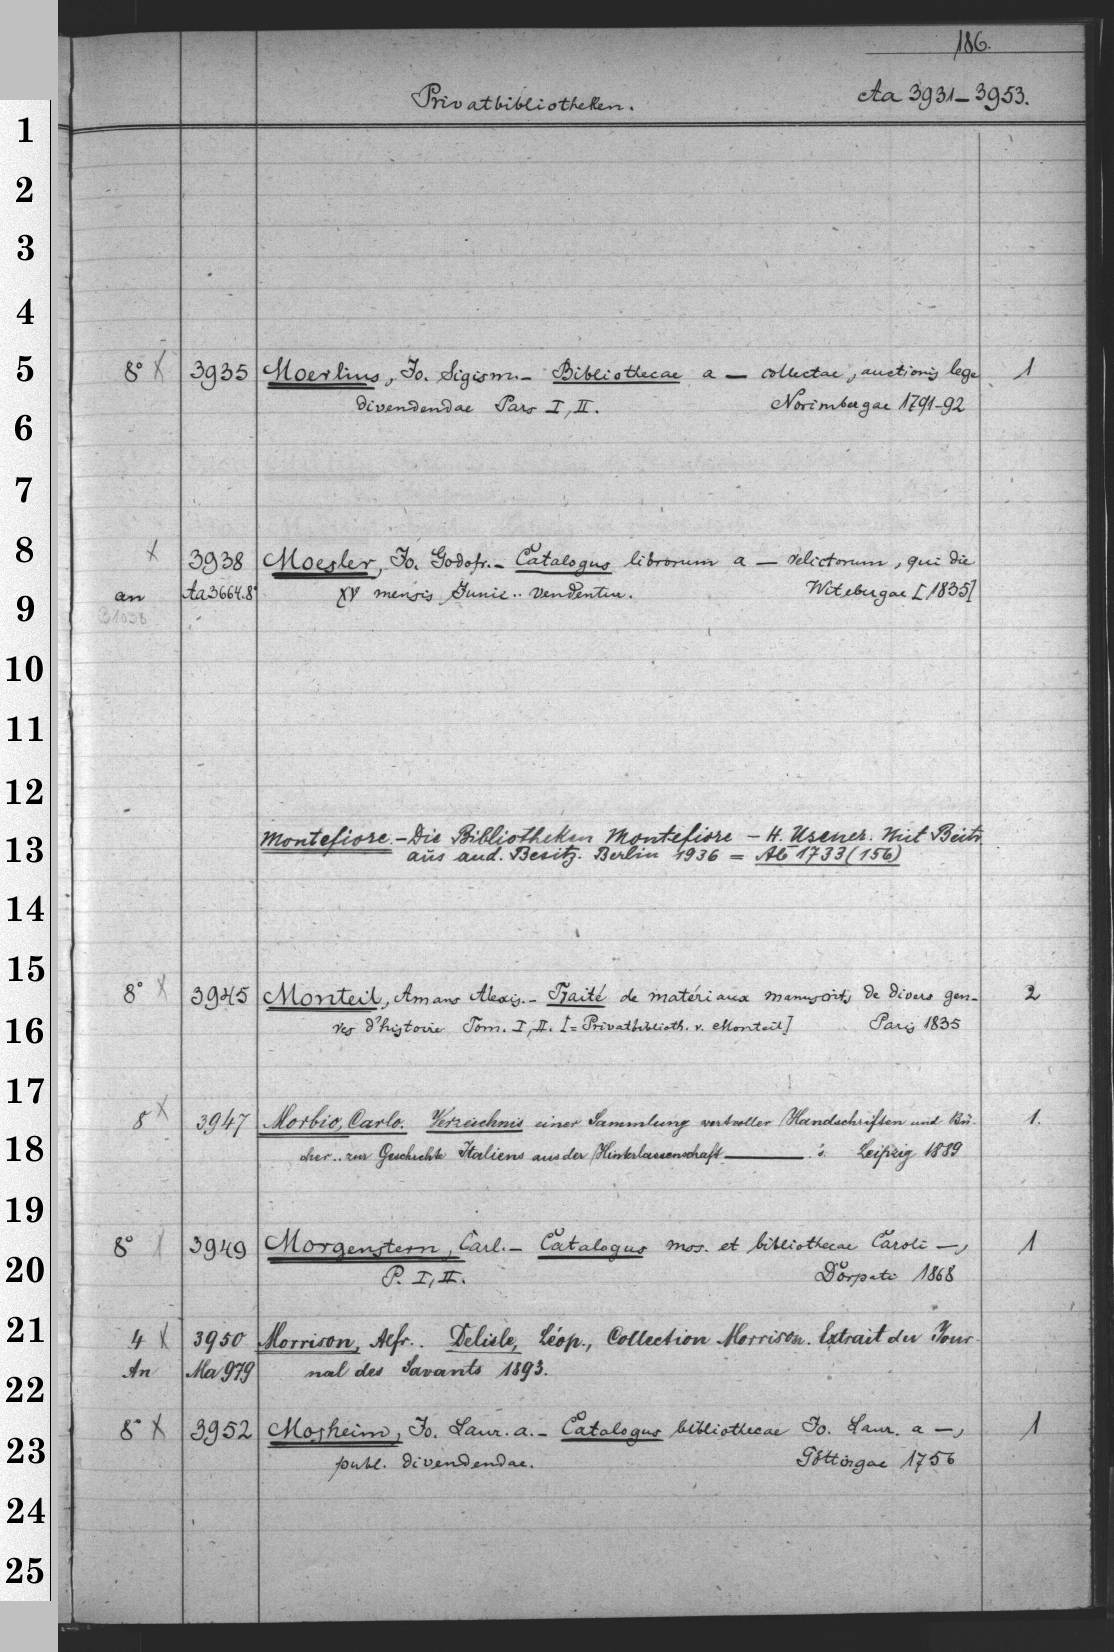 186.
Privatbibliotheken. Aa 3931-3953.
1
2
3
4
5
8° X 3935 Moerlius, Jo. Sigism. - Bibliothecae a — collectae, auctionis lege 1
divendendae Pars I, II. Norimbergae 1791-92
6
7
8
X 3938 Moesler, Jo. Godofr. - Catalogus librorum a — relictorum, qui die
an Aa3664.8° XV mensis Junii .. vendentur. Witebergae [1835]
9
10
11
12
Montefiore. - Die Bibliotheken Montefiore - H. Usener. Mit Beitr.
13
aus and. Besitz. Berlin 1936 = Ab 1733 (156)
14
15
8° X 3945 Monteil, Amans Alexis. - Traité de matériaux manuscrits de divers gen- 2
16
res d'histoire Tom. I, II. [= Privatbiblioth. v. Monteil] Paris 1835
17
8 X 3947 Morbio, Carlo. Verzeichnis einer Sammlung wertvoller Handschriften und Bü- 1.
18
cher .. zur Geschichte Italiens aus der Hinterlassenschaft — 's. Leipzig 1889
19
8° X 3949 Morgenstern, Carl. - Catalogus mss. et bibliothecae Caroli —, 1
20
P. I, II. Dorpati 1868
21
4 X 3950 Morrison, Alfr.. Delisle, Léop., Collection Morrison. Extrait du Jour-
An Ma 979 nal des Savants 1893.
22
8° X 3952 Mosheim, Jo. Laur. a. - Catalogus bibliothecae Jo. Laur. a —, 1
23
publ. divendendae. Göttingae 1756
24
25